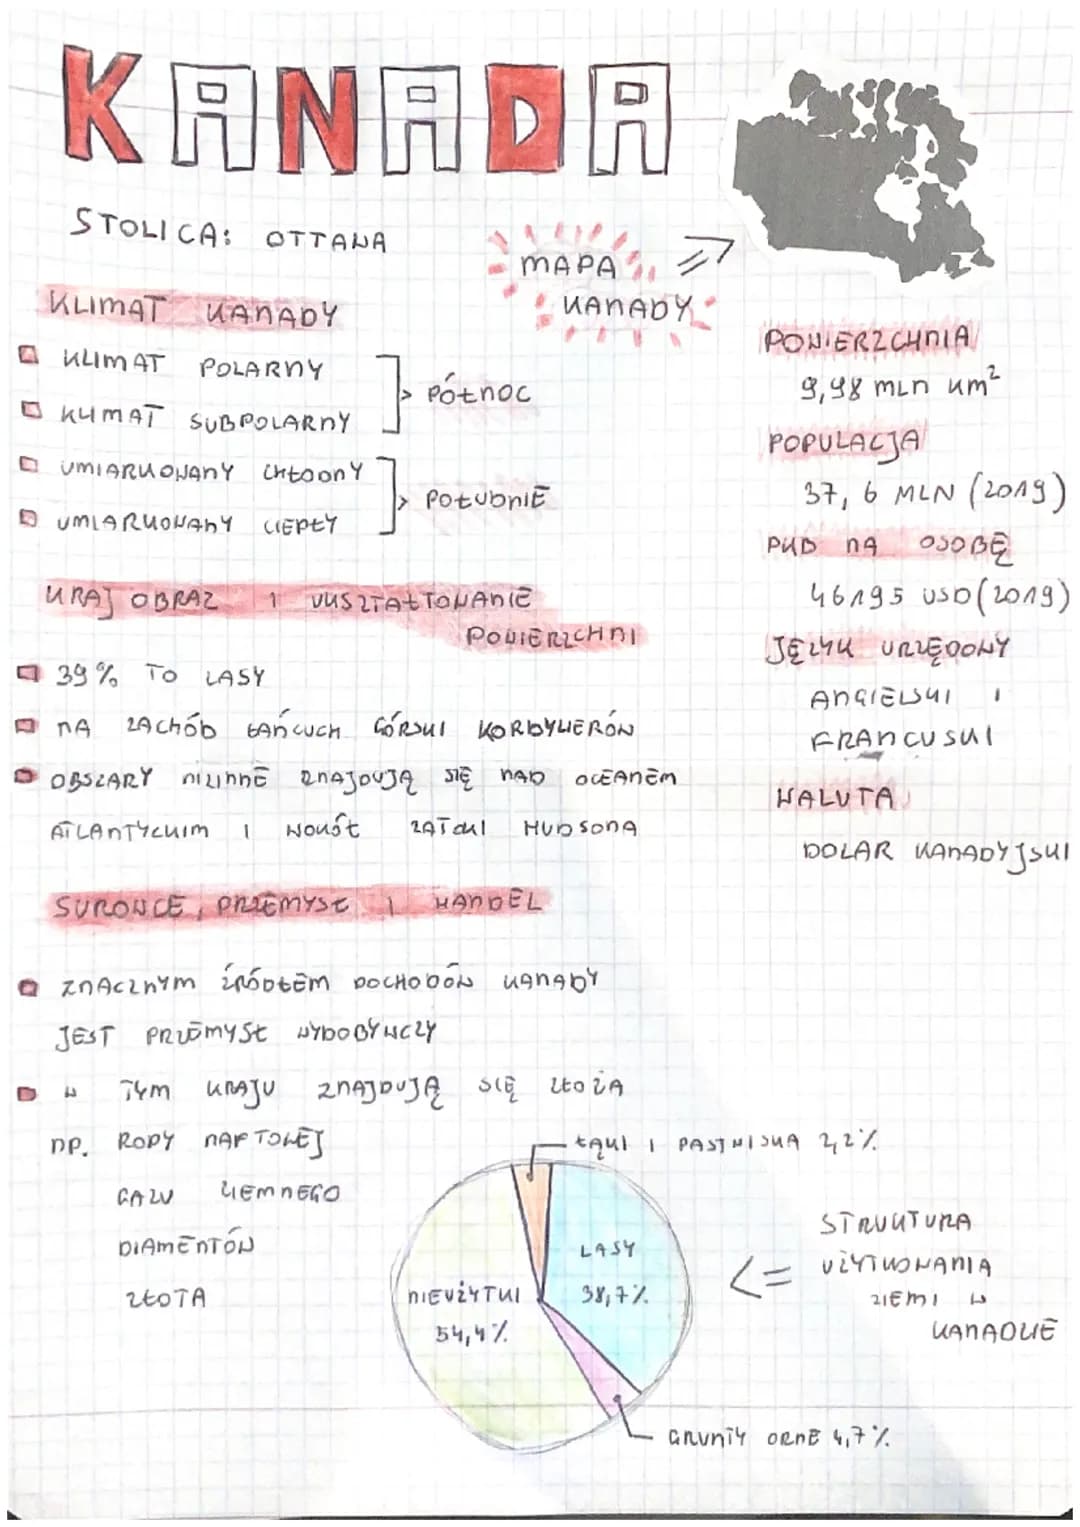 KANADA
STOLICA: OTTAWA
MAPA
KANADY
KLIMAT KANADY
KLIMAT POLARNY
KLIMAT SUBPOLARNY
PÓŁNOC
UMIARKOWANY CHŁODNY
UMIARKOWANY CIEPŁY
POŁUDNIE
KRAJOBRAZ I UKSZTAŁTOWANIE
POWIERZCHNI
39% TO LASY
NA ZACHÓD ŁAŃCUCH GÓRSKI KORDYLIERÓW
OBSZARY NIZINNE ZNAJDUJĄ SIĘ NAD OCEANEM
ATLANTYCKIM I WOKÓŁ ZATOKI HUDSONA
SUROWCE, PRZEMYSŁ I HANDEL
ZNACZNYM ŹRÓDŁEM DOCHODÓW KANADY
JEST PRZEMYSŁ WYDOBYWCZY
W TYM KRAJU ZNAJDUJĄ SIĘ ZŁOŻA
NP. ROPY NAFTOWEJ
GAZU ZIEMNEGO
DIAMENTÓW
ZŁOTA
POWIERZCHNIA
9,98 MLN KM²
POPULACJA
37,6 MLN (2019)
PKB NA OSOBĘ
46195 USD (2019)
JĘZYK URZĘDOWY
ANGIELSKI I
FRANCUSKI
WALUTA
DOLAR KANADYJSKI
ŁĄKI I PASTWISKA 2,2%
LASY
38,7%
NIEUŻYTKI
54,4%
GRUNTY ORNE 4,7%
STRUKTURA
UŻYTKOWANIA
ZIEMI W
KANADZIE